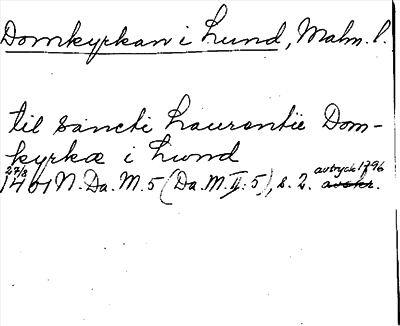 Domkyrkan i Lund, Malm. l.
til sancti Laurentii Dom-
kyrkæ i Lwnd
27/8 1401 N. Da. M. 5 (Da. M. II: 5), s. 2. avtryck 1796 avskr.